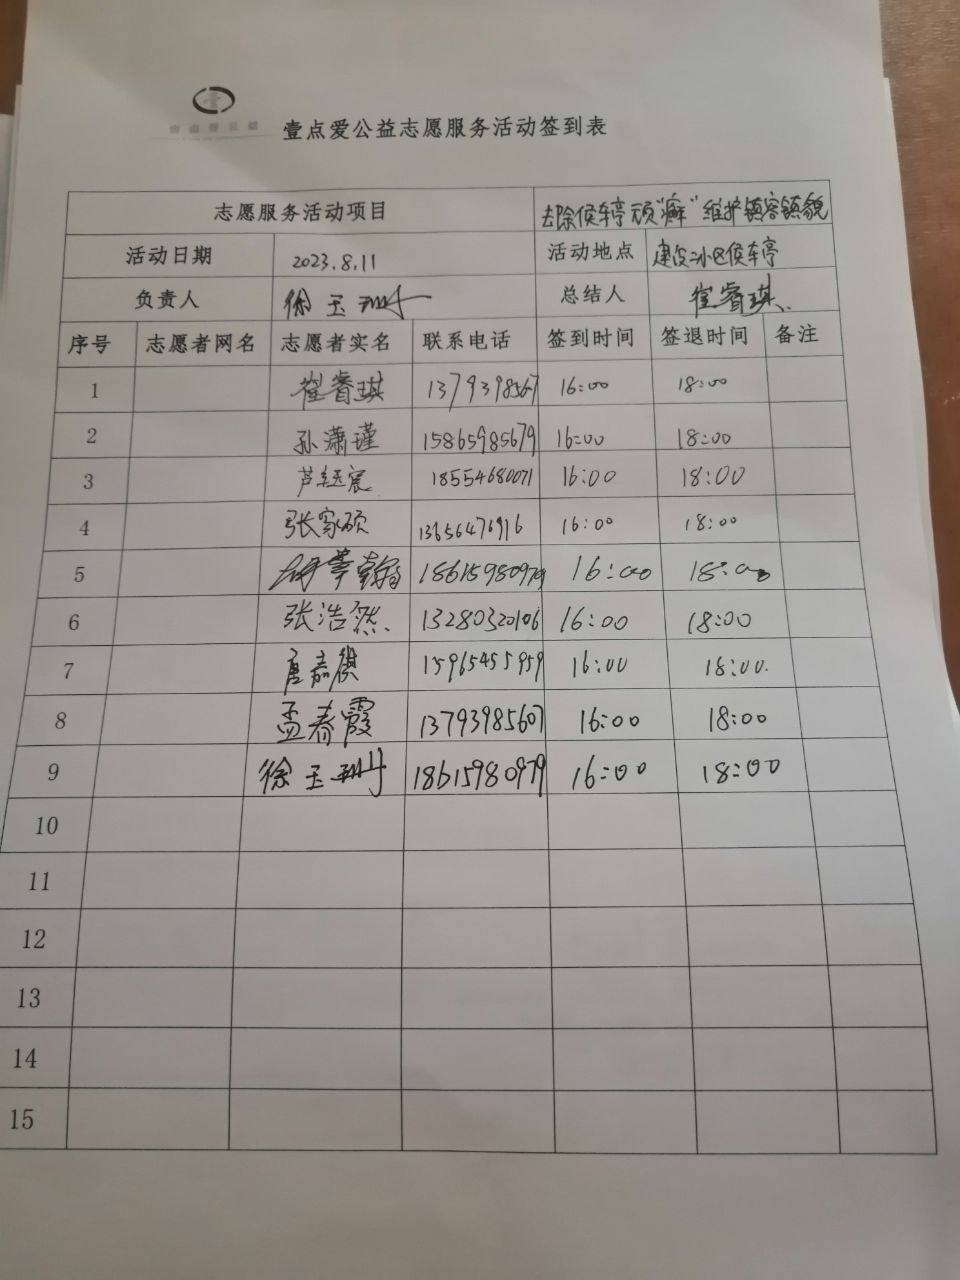 壹点爱公益志愿服务活动签到表
志愿服务活动项目 去除候车亭顽"癣"维护镇容镇貌
活动日期 2023.8.11 活动地点 建设小区候车亭
负责人 徐玉珊 总结人 崔睿琪
序号 志愿者网名 志愿者实名 联系电话 签到时间 签退时间 备注
1 崔睿琪 1379398567 16:00 18:00
2 孙潇瑾 15865985679 16:00 18:00
3 芦钰宸 18554680071 16:00 18:00
4 张家硕 13656476916 16:00 18:00
5 18615980979 16:00 18:00
6 张浩然 13280320106 16:00 18:00
7 唐嘉祺 15965455959 16:00 18:00
8 孟春霞 13793985607 16:00 18:00
9 徐玉珊 18615980979 16:00 18:00
10
11
12
13
14
15